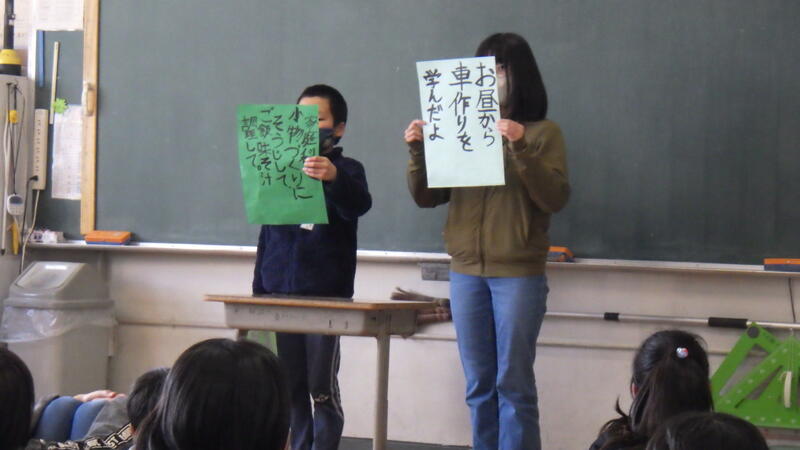 家庭科
小物づくりに
そうじして
ご飯味そ汁
して
お昼から
車作りを
学んだよ